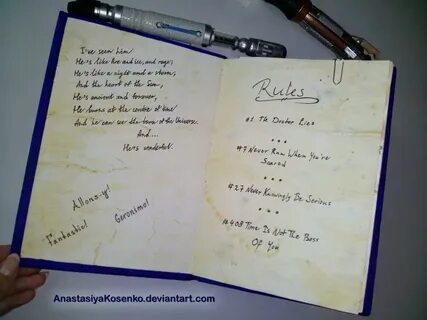 I've seen him
He's like fire and ice, and rage;
He's like a night and a storm,
And the heart of the Sun,
He's ancient and forever,
He burns at the centre of time
And he can see the turn of the Universe.
And...
He's wonderful.
Allons-y!
Fantastic!
Geronimo!
Rules
#1 The Doctor Lies
* * *
#7 Never Run When You're
Scared
* * *
#27 Never Knowingly Be Serious
* * *
#408 Time Is Not The Boss
Of You
AnastasiyaKosenko.deviantart.com